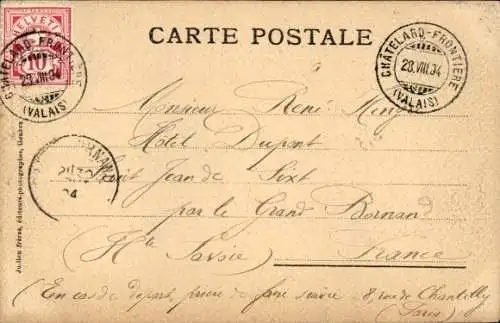 CARTE POSTALE
HELVETIA
10
CHÂTELARD-FRONTIÈRE
28.VIII.04
(VALAIS)
CHÂTELARD-FRONTIÈRE
28.VIII.04
(VALAIS)
Monsieur René
Hôtel Dupont
Saint Jean de Sixt
par le Grand Bornand
(Hte Savoie) France
(En cas de départ, prière de faire suivre 8, rue de Chantilly
(Paris)
Jullien frères, éditeurs-photographes, Genève